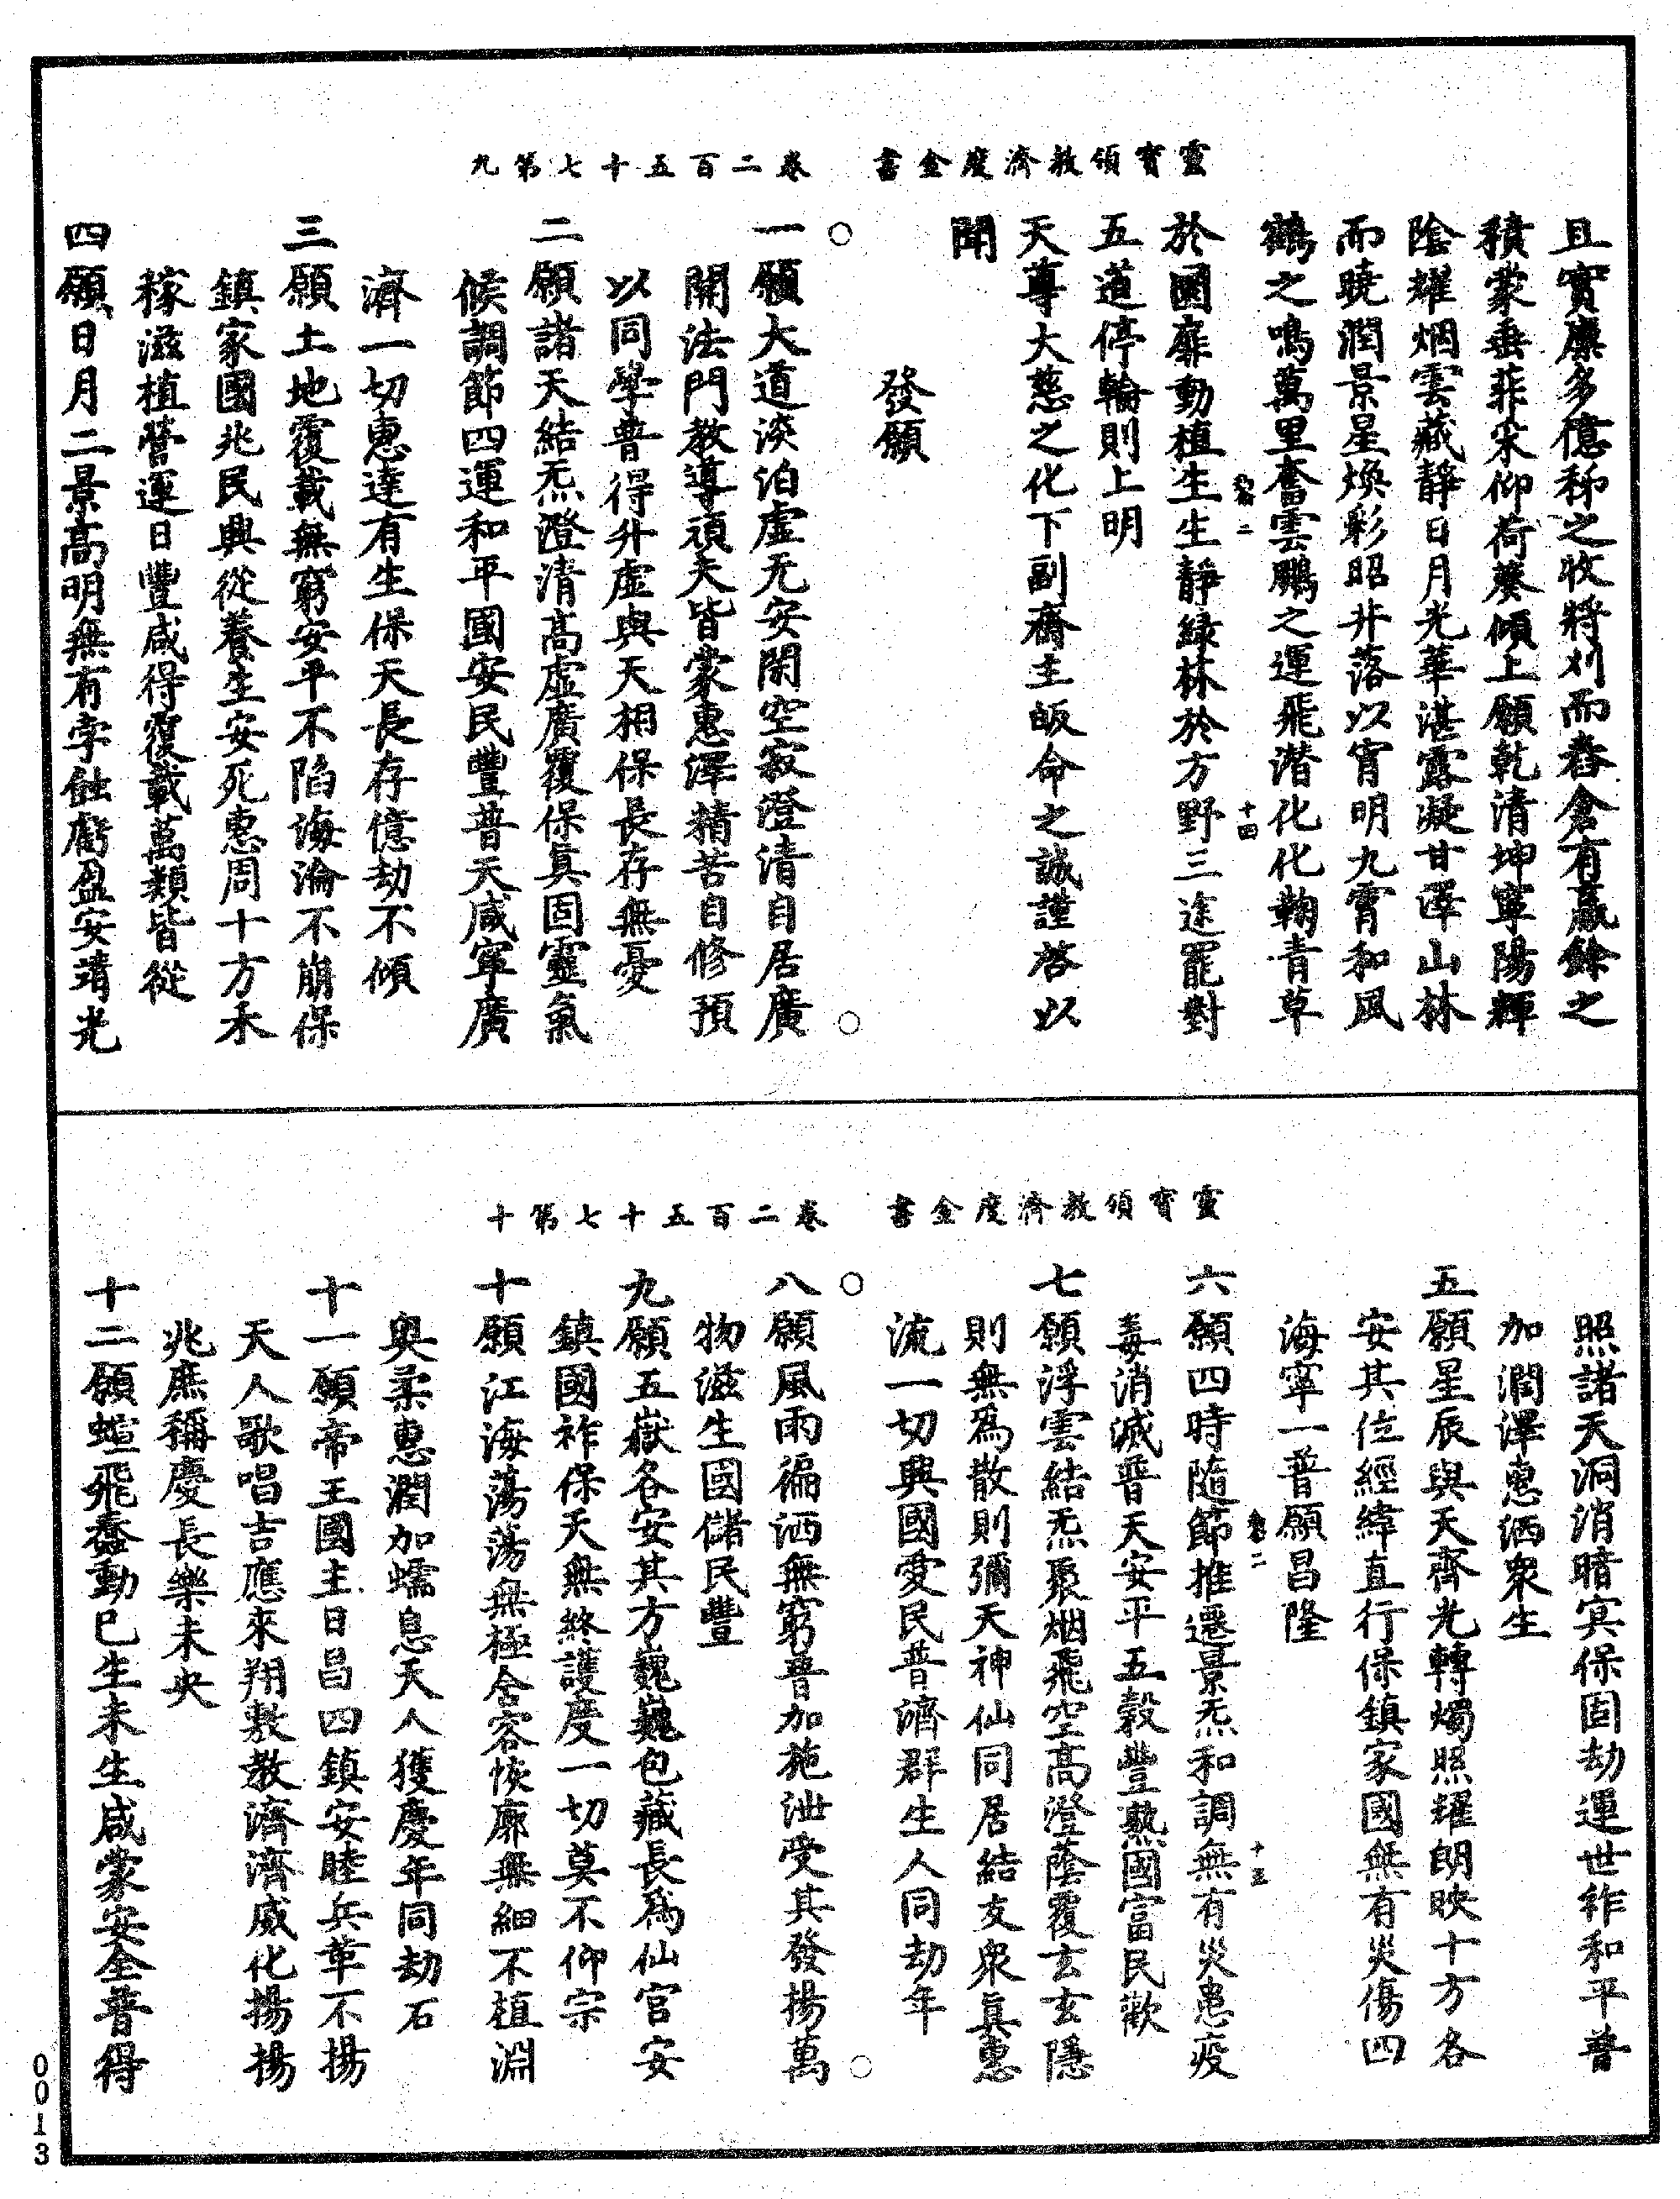 靈寶領教濟度金書　卷二百五十七第九
且實廩多億秭之收將刈而舂倉有贏餘之
積蒙垂菲罙仰荷葵傾上願乾清坤寧陽輝
陰耀烟雲藏靜日月光華湛露凝甘澤山林
而曉潤景星煥彩昭井落以宵明九霄和風
鶴之鳴萬里奮雲鵬之運飛潛化化鞠青草
於園扉動植生生靜綠林於方野三途罷對
五道停輪則上明
天尊大慈之化下副齋主皈命之誠謹啓以
聞
發願
一願大道淡泊虛无安閑空寂澄清自居廣
開法門教導頑夫皆蒙惠澤精苦自修預
以同學普得升虛與天相保長存無憂
二願諸天結炁澄清高虛廣覆保真固靈氣
候調節四運和平國安民豐普天咸寧廣
濟一切惠達有生保天長存億劫不傾
三願土地覆載無窮安平不陷海淪不崩保
鎮家國兆民興從養生安死惠周十方禾
稼滋植營運日豐咸得覆載萬類皆從
四願日月二景高明無有孛蝕虧盈安靖光
靈寶領教濟度金書　卷二百五十七第十
照諸天洞消暗冥保固劫運世祚和平普
加潤澤惠洒衆生
五願星辰與天齊光轉燭照耀朗映十方各
安其位經緯直行保鎮家國無有災傷四
海寧一普願昌隆
十五
六願四時隨節推遷景炁和調無有災患疫
毒消滅普天安平五穀豐熟國富民歡
七願浮雲結炁聚烟飛空高澄蔭覆玄玄隱
則無爲散則彌天神仙同居結友衆真惠
流一切興國愛民普濟群生人同劫年
八願風雨徧洒無窮普加施泄受其發揚萬
物滋生國儲民豐
九願五嶽各安其方巍巍包藏長爲仙官安
鎮國祚保天無終護度一切莫不仰宗
十願江海蕩蕩無極含容恢廓無細不植淵
奧柔惠潤加蠕息天人獲慶年同劫石
十一願帝王國主日昌四鎮安睦兵革不揚
天人歌唱吉應來翔敷教濟濟威化揚揚
兆庶稱慶長樂未央
十二願蝖飛蠢動巳生未生咸蒙安全普得
0013